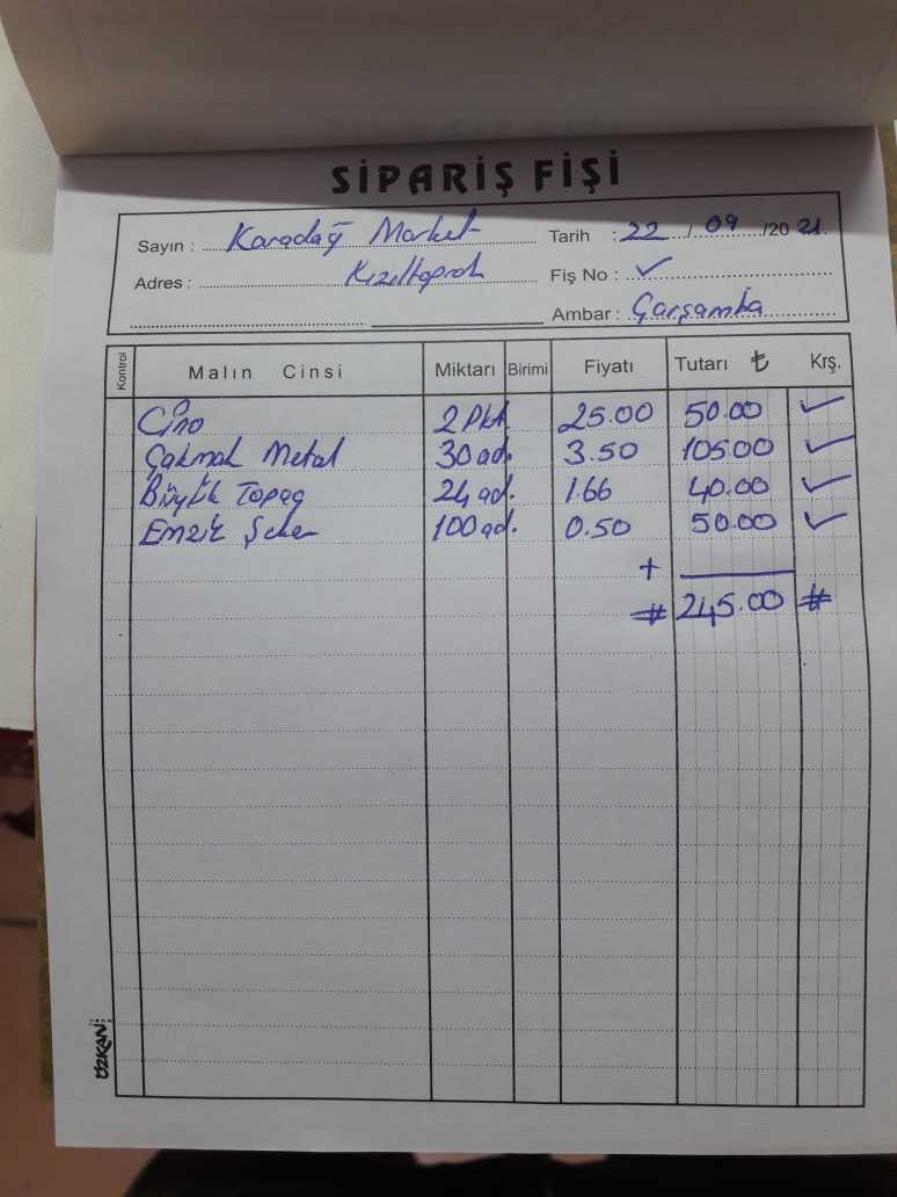 SİPARİŞ FİŞİ
Sayın : Karadağ Market Tarih : 22 / 09 /20 21.
Adres : Kızıltoprak Fiş No : ✓
Ambar : Çarşamba
Kontrol Malın Cinsi Miktarı Birimi Fiyatı Tutarı ₺ Krş.
Cino 2 Pkt. 25.00 50.00 ✓
Çakmak Metal 30 ad. 3.50 105.00 ✓
Büyük Topaç 24 ad. 1.66 40.00 ✓
Emzik Şeker 100 ad. 0.50 50.00 ✓
+
# 245.00 #
ÖZKAN